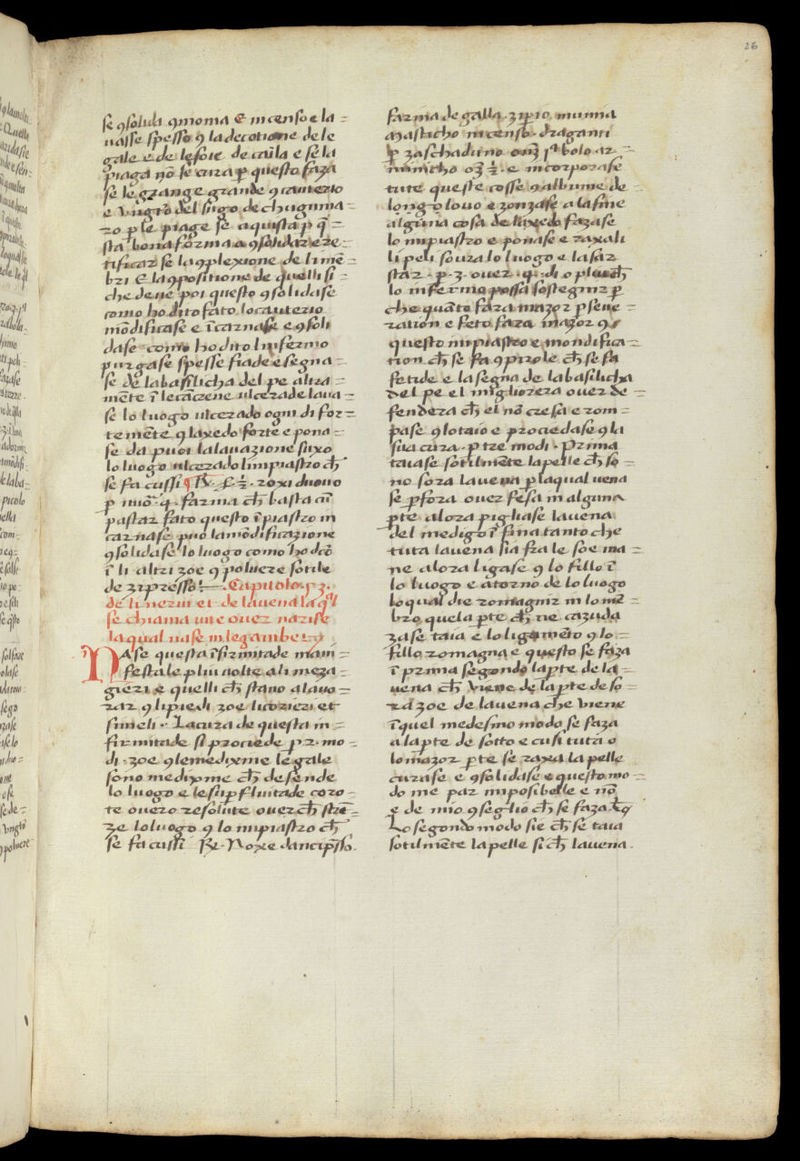 26
se 9solida 9moma E incenso e la =
uasse spesso 9 la decotione de le
gale e de le foie de caula e se la
piaga nō se cura p questo faza
se le grange grande 9 cauterio
e Vngto del sugo de chuguma =
ro p le piage se aquista p q̄ =
sta bona forma a 9solidar e re =
tificar se la 9plexione de li mē =
bri E la 9positione de quelli si =
che dene poi questo 9solidase
como ho dito fato lo cauterio
mōdificase e īcarnase e 9soli
dase como ho dito linfermo
purgase spesse fiade e segna =
se de la basilicha del pe altra =
mēte ī le cāzene ulcerade laua =
se lo luogo ulcerado ogni di for =
te mēte 9 laxedo forte e pona =
se da puoi la lauazione suxo
lo luogo ulcerado limpiastro ch̄
se fa cussi R. roxi duouo
p nuō q. farina ch̄ basta a
pastar fato questo īpiastro in
carnase puo la mōdificazione
9solidase lo luogo como ho dcō
ī li altri zoe 9 poluere sotile
de zipresso. Capitolo. p. 3.
de li nerui et de la uena la q̄l
se chiama uite ouer narise
la qual nase in le gambe
Nase questa īfirmitade mani =
festa le plui uolte a li meza =
gieri e quelli ch̄ stano a lauo =
rar 9 li piedi zoe lauorieri et
simeli. La cura de questa in =
firmitade si prociede p 2. mo =
di. zoe 9 le medixine le gale
sono medixine ch̄ defende
lo luogo e le supfluitade coro =
te ouero resolute ouer ch̄ strē =
ze lo luogo 9 lo inpiastro ch̄
se fa cussi R. Noxe dancipsso.
farina de galla. mumia
Masticho incenso. draganti
p zaschaduno onz bolo ar =
minicho oz. e incorporase
tute queste cosse 9 albume de
longo louo e zonzase a la fine
alguna cosa de lixedo fazase
lo inpiastro e ponase e raxali
li peli soura lo luogo e lasar
star. p. 3. ouer. q. di o plu ch̄
lo infermo possa sostegnir p
che quāto fara mazor pseue =
ration e feto fara mazor 9
questo inpiastro e mondifica =
tion ch̄ se fa 9 pirole ch̄ se fa
fetide e la segna de la basilicha
del pe el migliorera ouer de =
fendera ch̄ el nō cresa e rom =
pase 9 lotaio e prociedase 9 la
sua cura. p tre modi. Prima
taiase sotilmēte la pelle ch̄ so =
no sora la uena p la qual uena
se pfora ouer fesa in alguna
pte alora pigliase la uena
del medigo ī fina tanto che
tuta la uena sia fra le soe ma =
ne alora ligase 9 lo fillo ī
lo luogo e atorno de lo luogo
lo qual die romagnir in lo mē =
bro quela pte ch̄ ne cazuda
zase taia e lo ligamēto 9 lo =
fillo romagna e questo se faza
ī prima segondo la pte de la =
uena ch̄ Viene de la pte de so =
ra zoe de la uena che viene
ī quel medesmo modo se faza
a la pte de sotto e cusi tuta o
lo mazor pte se raxa la pelle
curase e 9solidase e questo mo =
do me par imposibelle e nō
e de mio 9seglio ch̄ se faza
Lo segondo modo sie ch̄ se taia
sotilmēte la pelle si ch̄ la uena.